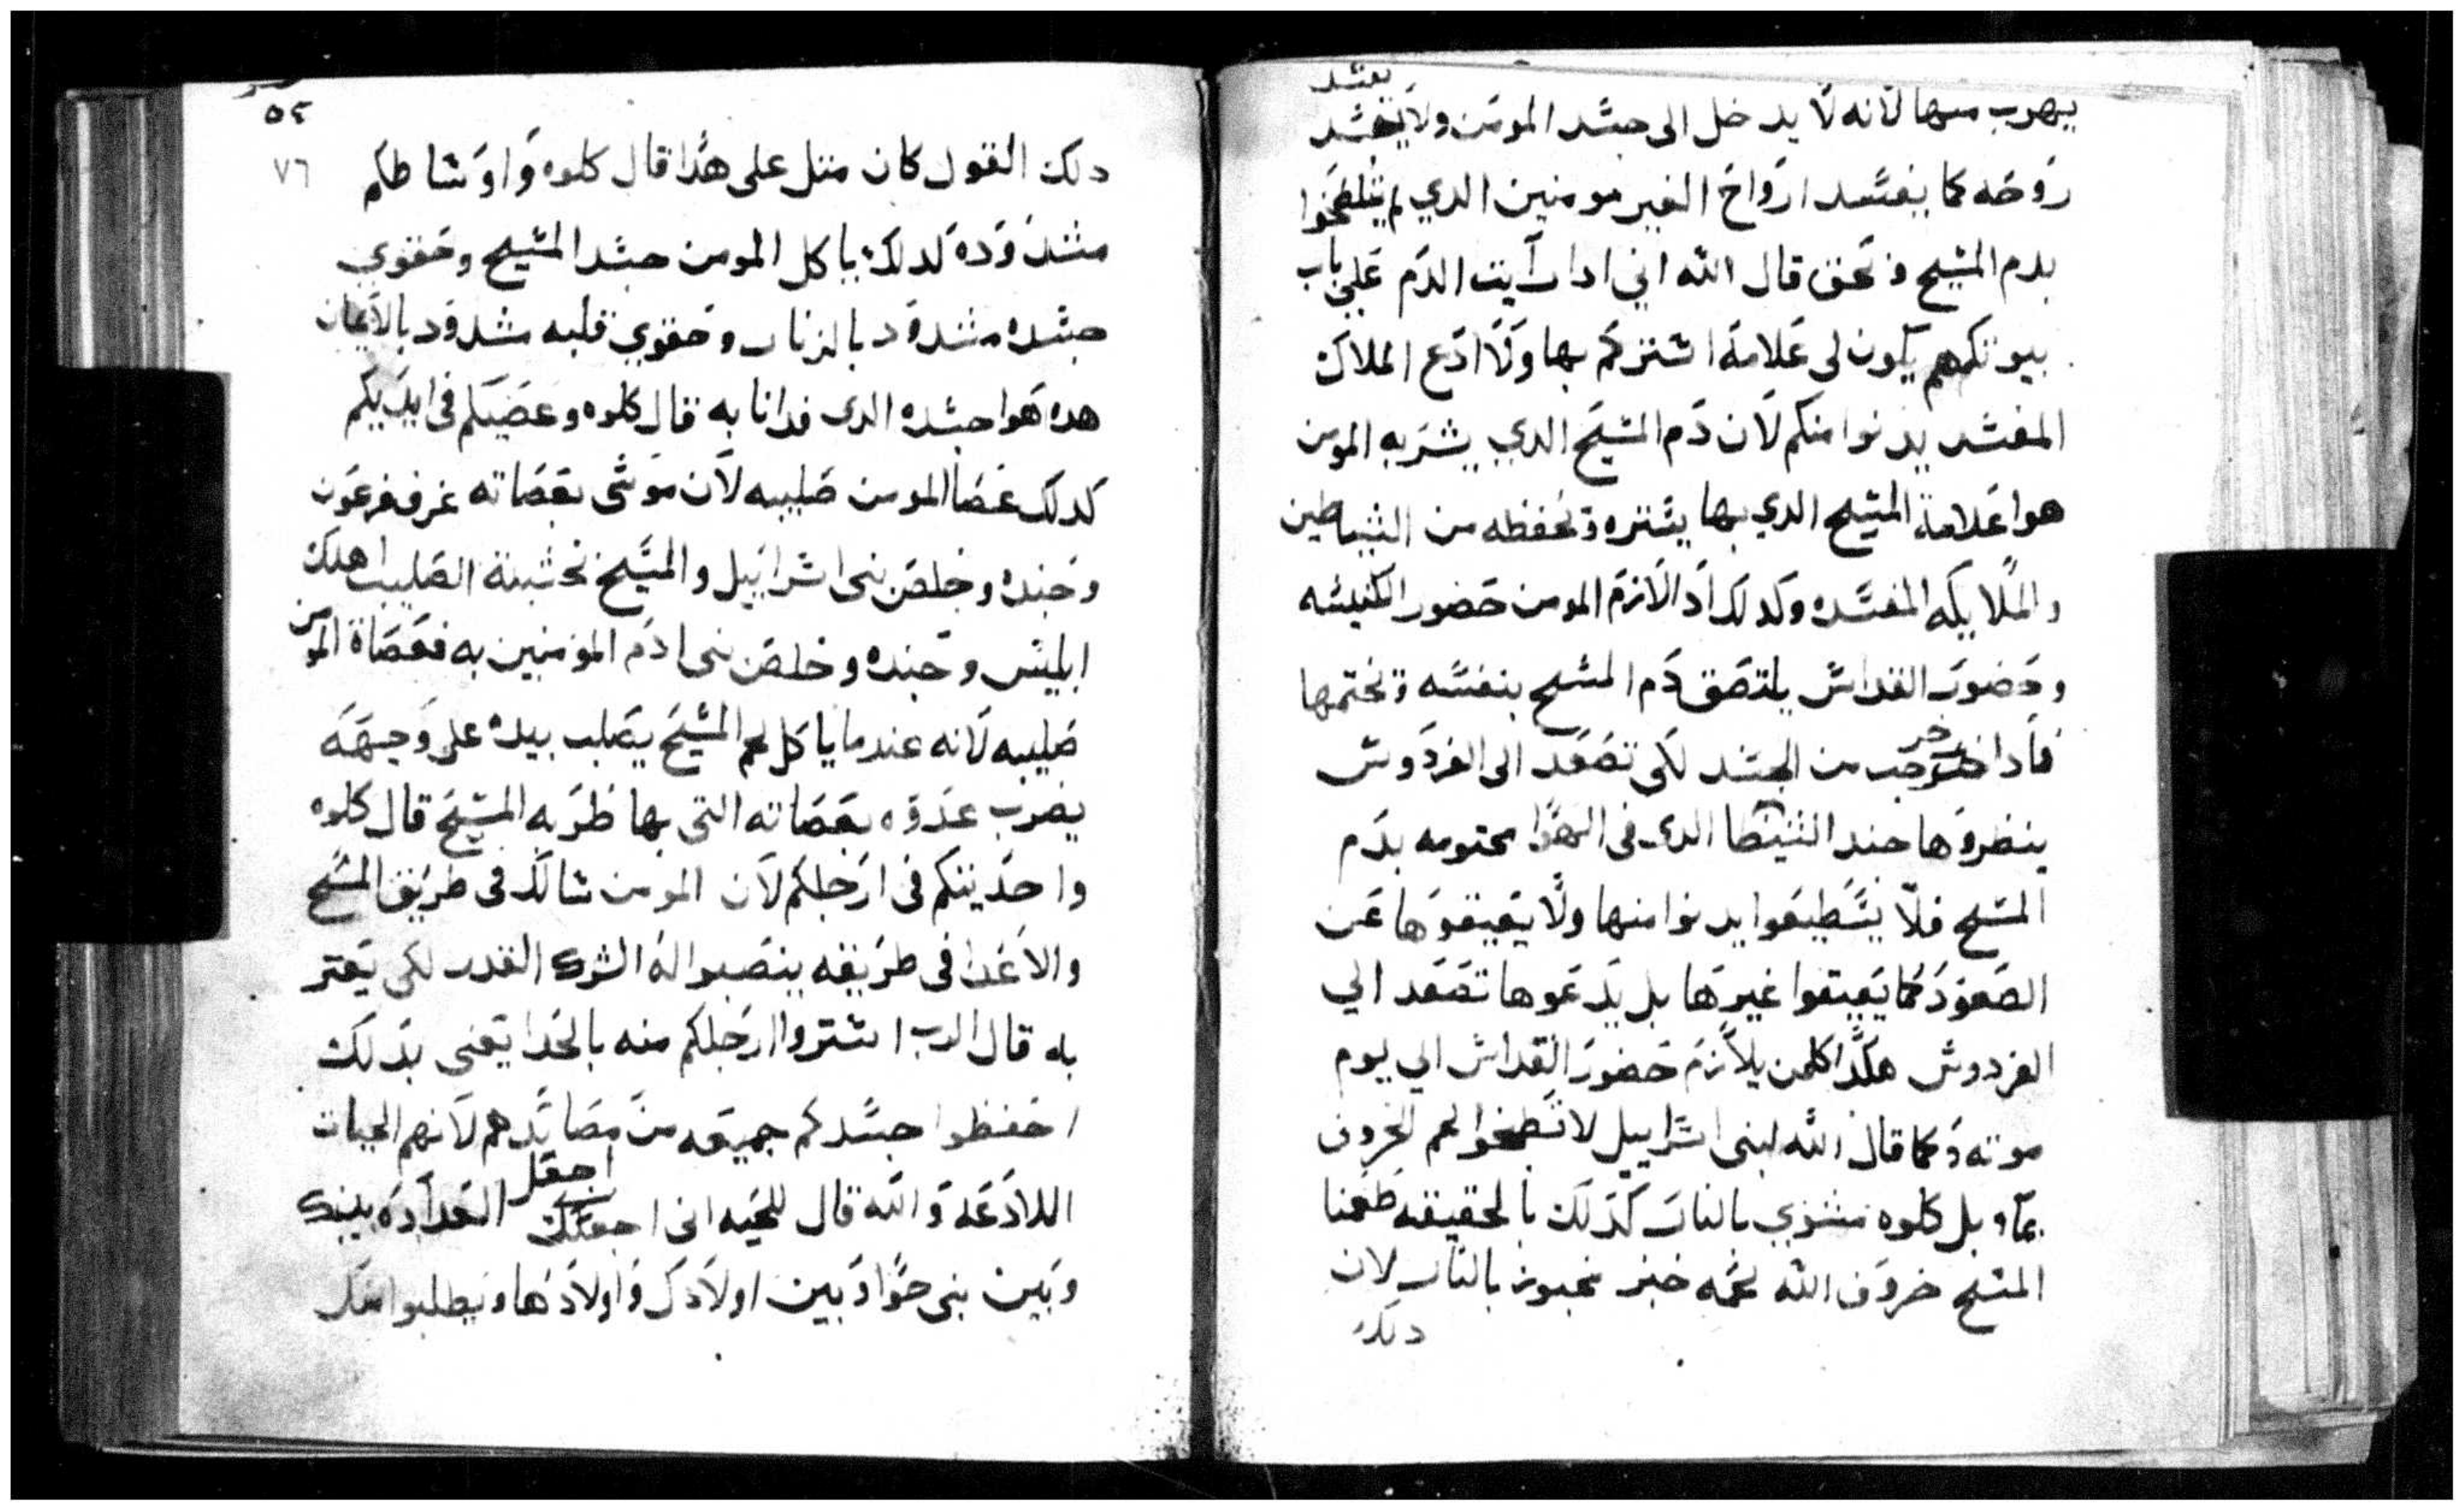 يفسد
يهرب منها لانه لا يدخل الى جسد المومن ولا
روحه كما يفسد ارواح الغير مومنين الدي لم يتلطخوا
بدم المسيح وبحق قال الله اني ادا رايت الدم على باب
بيوتكم يكون لى علامة استركم بها ولا ادع الملاك
المفسد يدنوا منكم لان دم المسيح الدي يشربه المومن
هوا علامة المسيح الدي بها يستره وتحفظه من الشياطين
والملايكه المفسده وكدلك ادا لازم المومن حضور الكنيسه
وحضور القداس يلتصق دم المسيح بنفسه وتختمها
فادا خرجت من الجسد لكى تصعد الى الفردوس
ينظروها جند الشيطا الدى فى الهوا مختومه بدم
المسيح فلا يستطيعوا يدنوا منها ولا يعيقوها عن
الصعود كما يعيقوا غيرها بل يدعوها تصعد الي
الفردوس هكدا كلمن يلازم حضور القداس الي يوم
موته وكما قال الله لبنى اسراييل لا تطبخوا لحم الخروف
بماء بل كلوه مشوي بالنار كدلك بالحقيقه طعمنا
المسيح خروف الله لحمه خبز مخبوز بالنار لان
دلك
٥٤
٧٦
دلك القول كان مثل على هدا قال كلوه واوساطكم
مشدوده لدلك ياكل المومن جسد المسيح وحقوي
جسده مشدود بالزنار وحقوي قلبه مشدود بالايمان
هده هوا جسده الدى فدانا به قال كلوه وعصيكم فى ايديكم
كدلك عصا المومن صليبه لان موسى بعصاته غرف فرعون
وجنده وخلص بنى اسراييل والمسيح بخشبة الصليب اهلك
ابليس وجنده وخلص بنى ادم المومنين به فعصاة المومن
صليبه لانه عندما ياكل لحم المسيح يصلب بيده على وجهه
يضرب عدوه بعصاته التى بها ظربه المسيح قال كلوه
واحديتكم فى ارجلكم لان المومن سالك فى طريق المسيح
والاعدا فى طريقه ينصبوا له الشرك القدر لكى يعتر
به قال الرب استروا ارجلكم منه بالحدا يعنى بدلك
احفظوا جسدكم جميعه من مصايدهم لانهم الحيات
اللادعه والله قال للحيه انى اجعل العداوه بينك
وبين بنى حوا وبين اولادك واولادها ويطلبوا منك